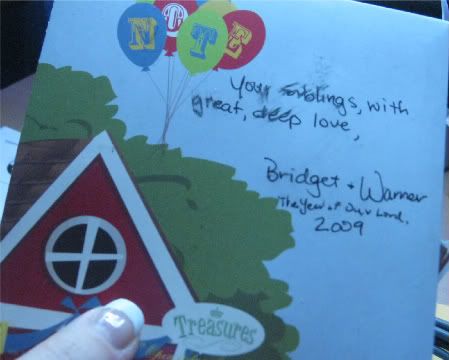 NOTE
Your siblings, with
great, deep love,
Bridget + Warner
The Year of Our Lord,
2009
Treasures